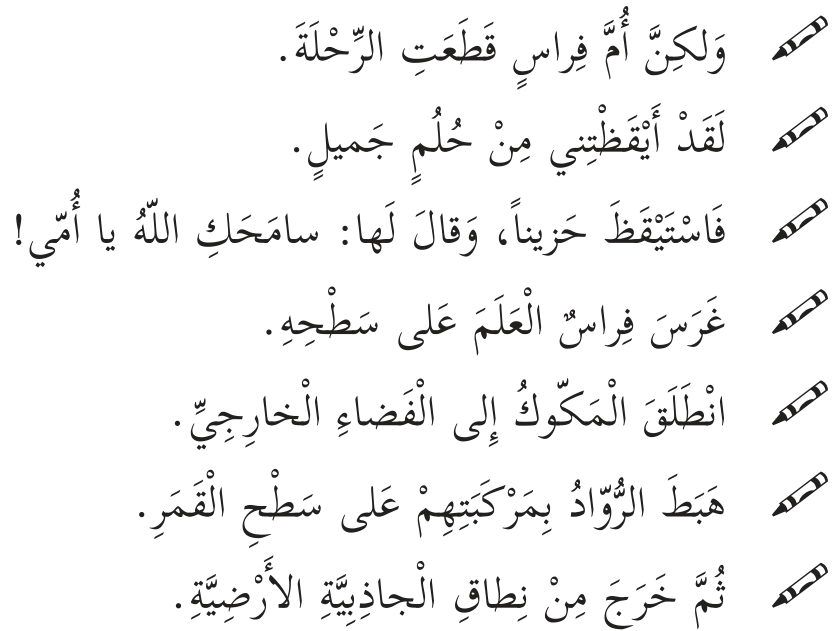 وَلكِنَّ أُمَّ فِراسٍ قَطَعَتِ الرِّحْلَةَ.
لَقَدْ أَيْقَظْتِني مِنْ حُلُمٍ جَميلٍ.
فَاسْتَيْقَظَ حَزيناً، وَقالَ لَها: سامَحَكِ اللّهُ يا أُمّي!
غَرَسَ فِراسٌ الْعَلَمَ عَلى سَطْحِهِ.
انْطَلَقَ الْمَكّوكُ إِلى الْفَضاءِ الْخارِجِيِّ.
هَبَطَ الرُّوّادُ بِمَرْكَبَتِهِمْ عَلى سَطْحِ الْقَمَرِ.
ثُمَّ خَرَجَ مِنْ نِطاقِ الْجاذِبِيَّةِ الأَرْضِيَّةِ.